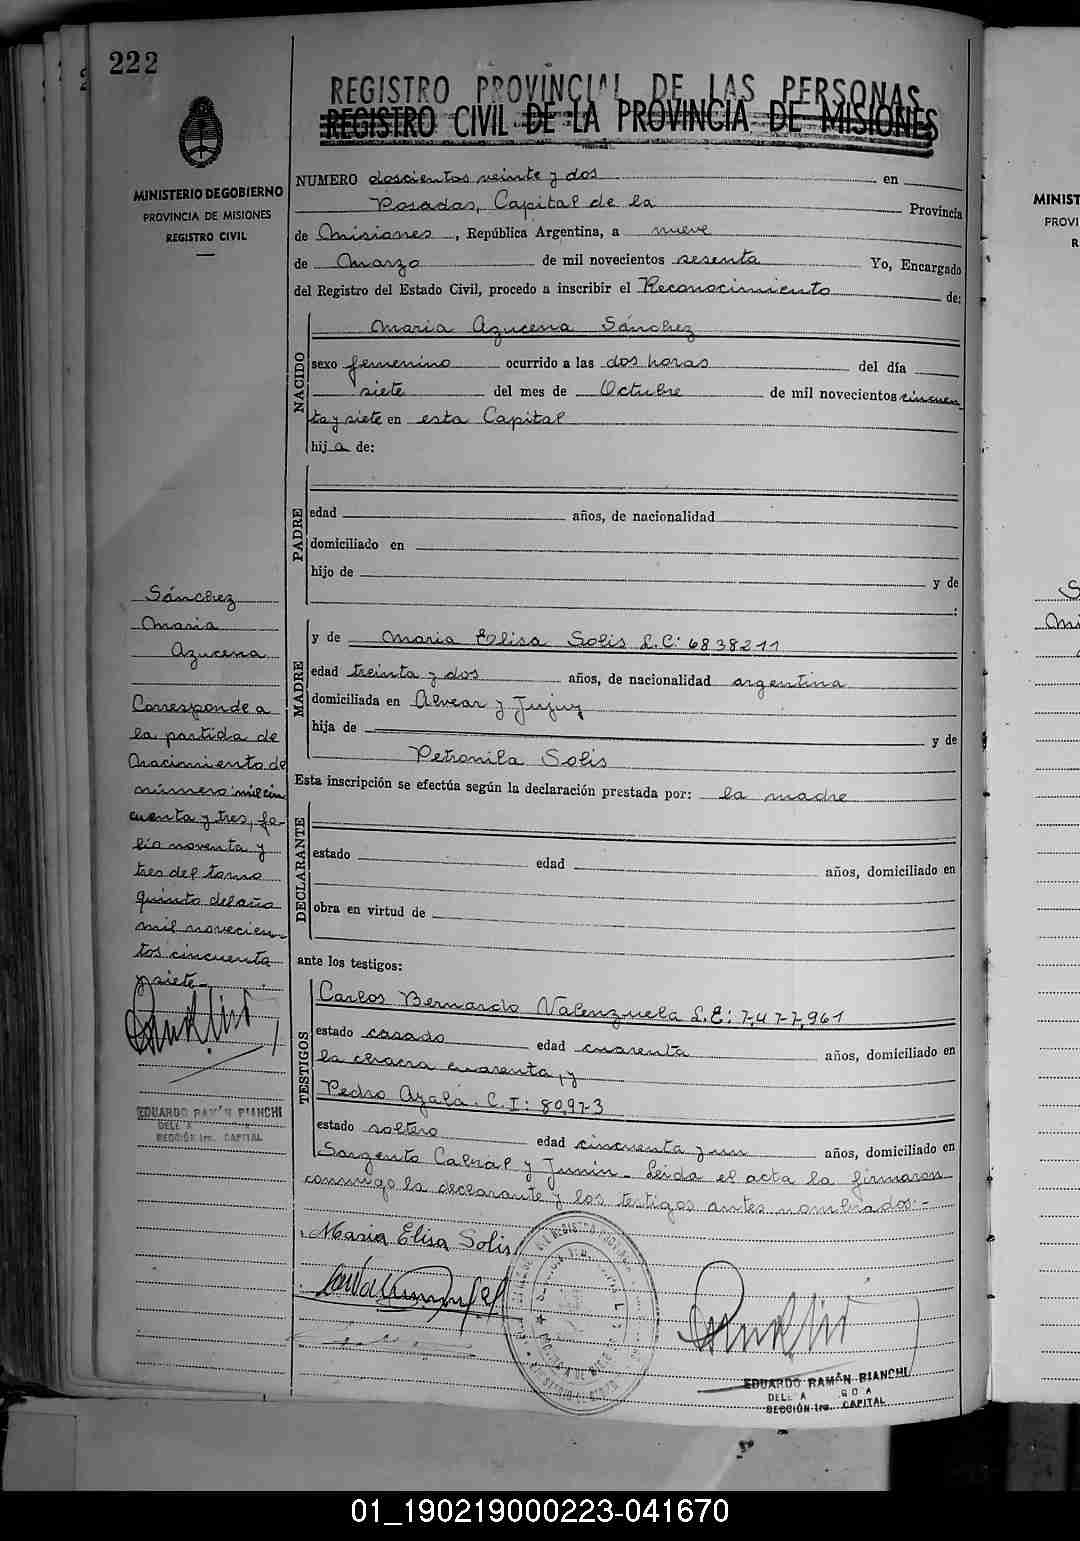 222
REGISTRO PROVINCIAL DE LAS PERSONAS
REGISTRO CIVIL DE LA PROVINCIA DE MISIONES
MINISTERIO DE GOBIERNO
PROVINCIA DE MISIONES
REGISTRO CIVIL
NUMERO doscientos veinte y dos en
Posadas, Capital de la Provincia
de Misiones, República Argentina, a nueve
de Marzo de mil novecientos sesenta Yo, Encargado
del Registro del Estado Civil, procedo a inscribir el Reconocimiento de:
NACIDO
Maria Azucena Sánchez
sexo femenino ocurrido a las dos horas del día
siete del mes de Octubre de mil novecientos cincuen
ta y siete en esta Capital
hija de:
PADRE
edad años, de nacionalidad
domiciliado en
hijo de y de
:
MADRE
y de Maria Elisa Solis L.C: 6838211
edad treinta y dos años, de nacionalidad argentina
domiciliada en Alvear y Jujuy
hija de y de
Petronila Solis
Esta inscripción se efectúa según la declaración prestada por: la madre
DECLARANTE
estado edad años, domiciliado en
obra en virtud de
ante los testigos:
TESTIGOS
Carlos Bernardo Valenzuela L.E: 7,477,961
estado casado edad cuarenta años, domiciliado en
la chacra cuarenta, y
Pedro Ayala. C.I: 80,973
estado soltero edad cincuenta y un años, domiciliado en
Sargento Cabral y Junin_ Leida el acta la firmaron
conmigo la declarante y los testigos antes nombrados:-
Maria Elisa Solis
EDUARDO RAMÓN BIANCHI
SECCIÓN 1ra. CAPITAL
Sánchez
Maria
Azucena
Corresponde a
la partida de
Nacimiento de
número: mil cin
cuenta y tres, fo-
lio noventa y
tres del tomo
quinto del año
mil novecien-
tos cincuenta
y siete_
EDUARDO RAMÓN BIANCHI
SECCIÓN 1ra. CAPITAL
MINIST
PROVI
R
01_190219000223-041670